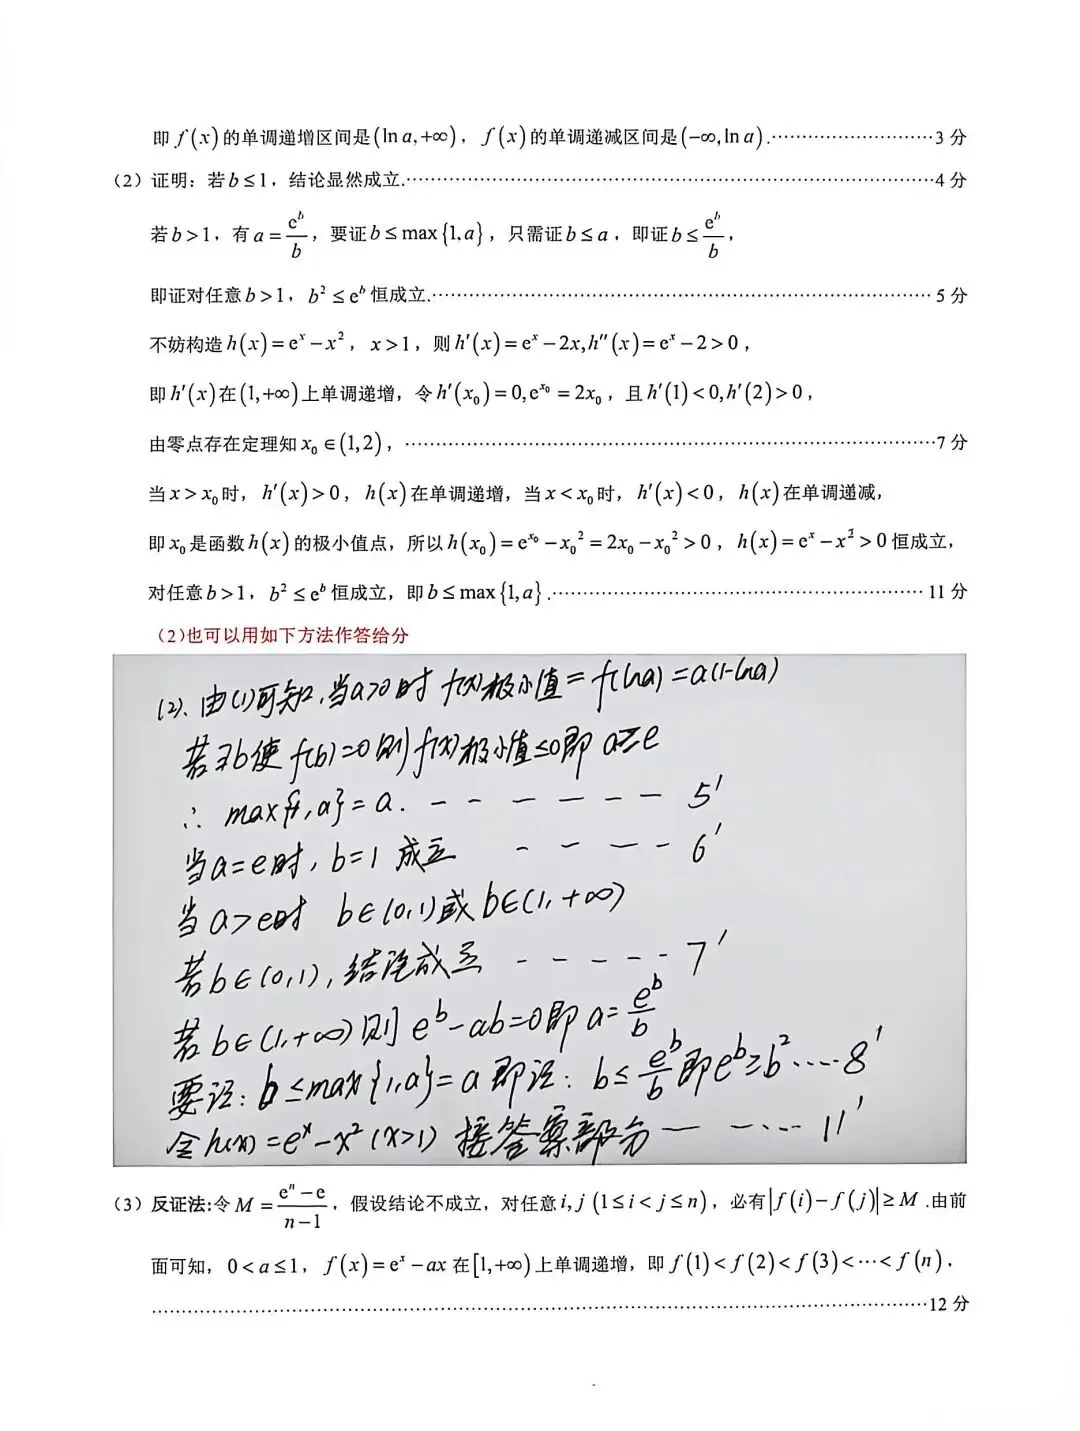 即 f(x) 的单调递增区间是(ln a,+∞)，f(x) 的单调递减区间是(−∞,ln a).⋯⋯⋯⋯⋯⋯⋯⋯⋯3 分
（2）证明：若 b≤1，结论显然成立.⋯⋯⋯⋯⋯⋯⋯⋯⋯⋯⋯⋯⋯⋯⋯⋯⋯⋯⋯⋯⋯⋯4 分
若 b>1，有 a=e^b/b，要证 b≤max{1,a}，只需证 b≤a，即证 b≤e^b/b，
即证对任意 b>1，b²≤e^b 恒成立.⋯⋯⋯⋯⋯⋯⋯⋯⋯⋯⋯⋯⋯⋯⋯⋯⋯⋯⋯⋯⋯5 分
不妨构造 h(x)=e^x−x²，x>1，则 h′(x)=e^x−2x,h″(x)=e^x−2>0，
即 h′(x) 在(1,+∞)上单调递增，令 h′(x₀)=0,e^x₀=2x₀，且 h′(1)<0,h′(2)>0，
由零点存在定理知 x₀∈(1,2)，⋯⋯⋯⋯⋯⋯⋯⋯⋯⋯⋯⋯⋯⋯⋯⋯⋯⋯⋯⋯⋯⋯7 分
当 x>x₀ 时，h′(x)>0，h(x) 在单调递增，当 x<x₀ 时，h′(x)<0，h(x) 在单调递减，
即 x₀ 是函数 h(x) 的极小值点，所以 h(x₀)=e^x₀−x₀²=2x₀−x₀²>0，h(x)=e^x−x²>0 恒成立，
对任意 b>1，b²≤e^b 恒成立，即 b≤max{1,a}.⋯⋯⋯⋯⋯⋯⋯⋯⋯⋯⋯⋯⋯⋯⋯11 分
（2)也可以用如下方法作答给分
(2)、由(1)可知,当a>0时 f(x)极小值=f(lna)=a(1-lna)
若∃b使 f(b)=0则f(x)极小值≤0即 a≥e
∴ max{1,a}=a. - - - - - - - 5′
当a=e时, b=1 成立 - - - - - 6′
当a>e时 b∈(0,1)或b∈(1,+∞)
若b∈(0,1),结论成立 - - - - - 7′
若b∈(1,+∞)则 e^b-ab=0即 a=e^b/b
要证: b≤max{1,a}=a 即证: b≤e^b/b 即e^b≥b²....8′
令h(x)=e^x-x²(x>1) 接答案部分— - .... 11′
（3）反证法:令 M=(e^n−e)/(n−1)，假设结论不成立，对任意 i,j (1≤i<j≤n)，必有|f(i)−f(j)|≥M .由前
面可知，0<a≤1，f(x)=e^x−ax 在[1,+∞)上单调递增，即 f(1)<f(2)<f(3)<⋯<f(n)，
⋯⋯⋯⋯⋯⋯⋯⋯⋯⋯⋯⋯⋯⋯⋯⋯⋯⋯⋯⋯⋯⋯⋯⋯⋯⋯⋯⋯⋯⋯12 分